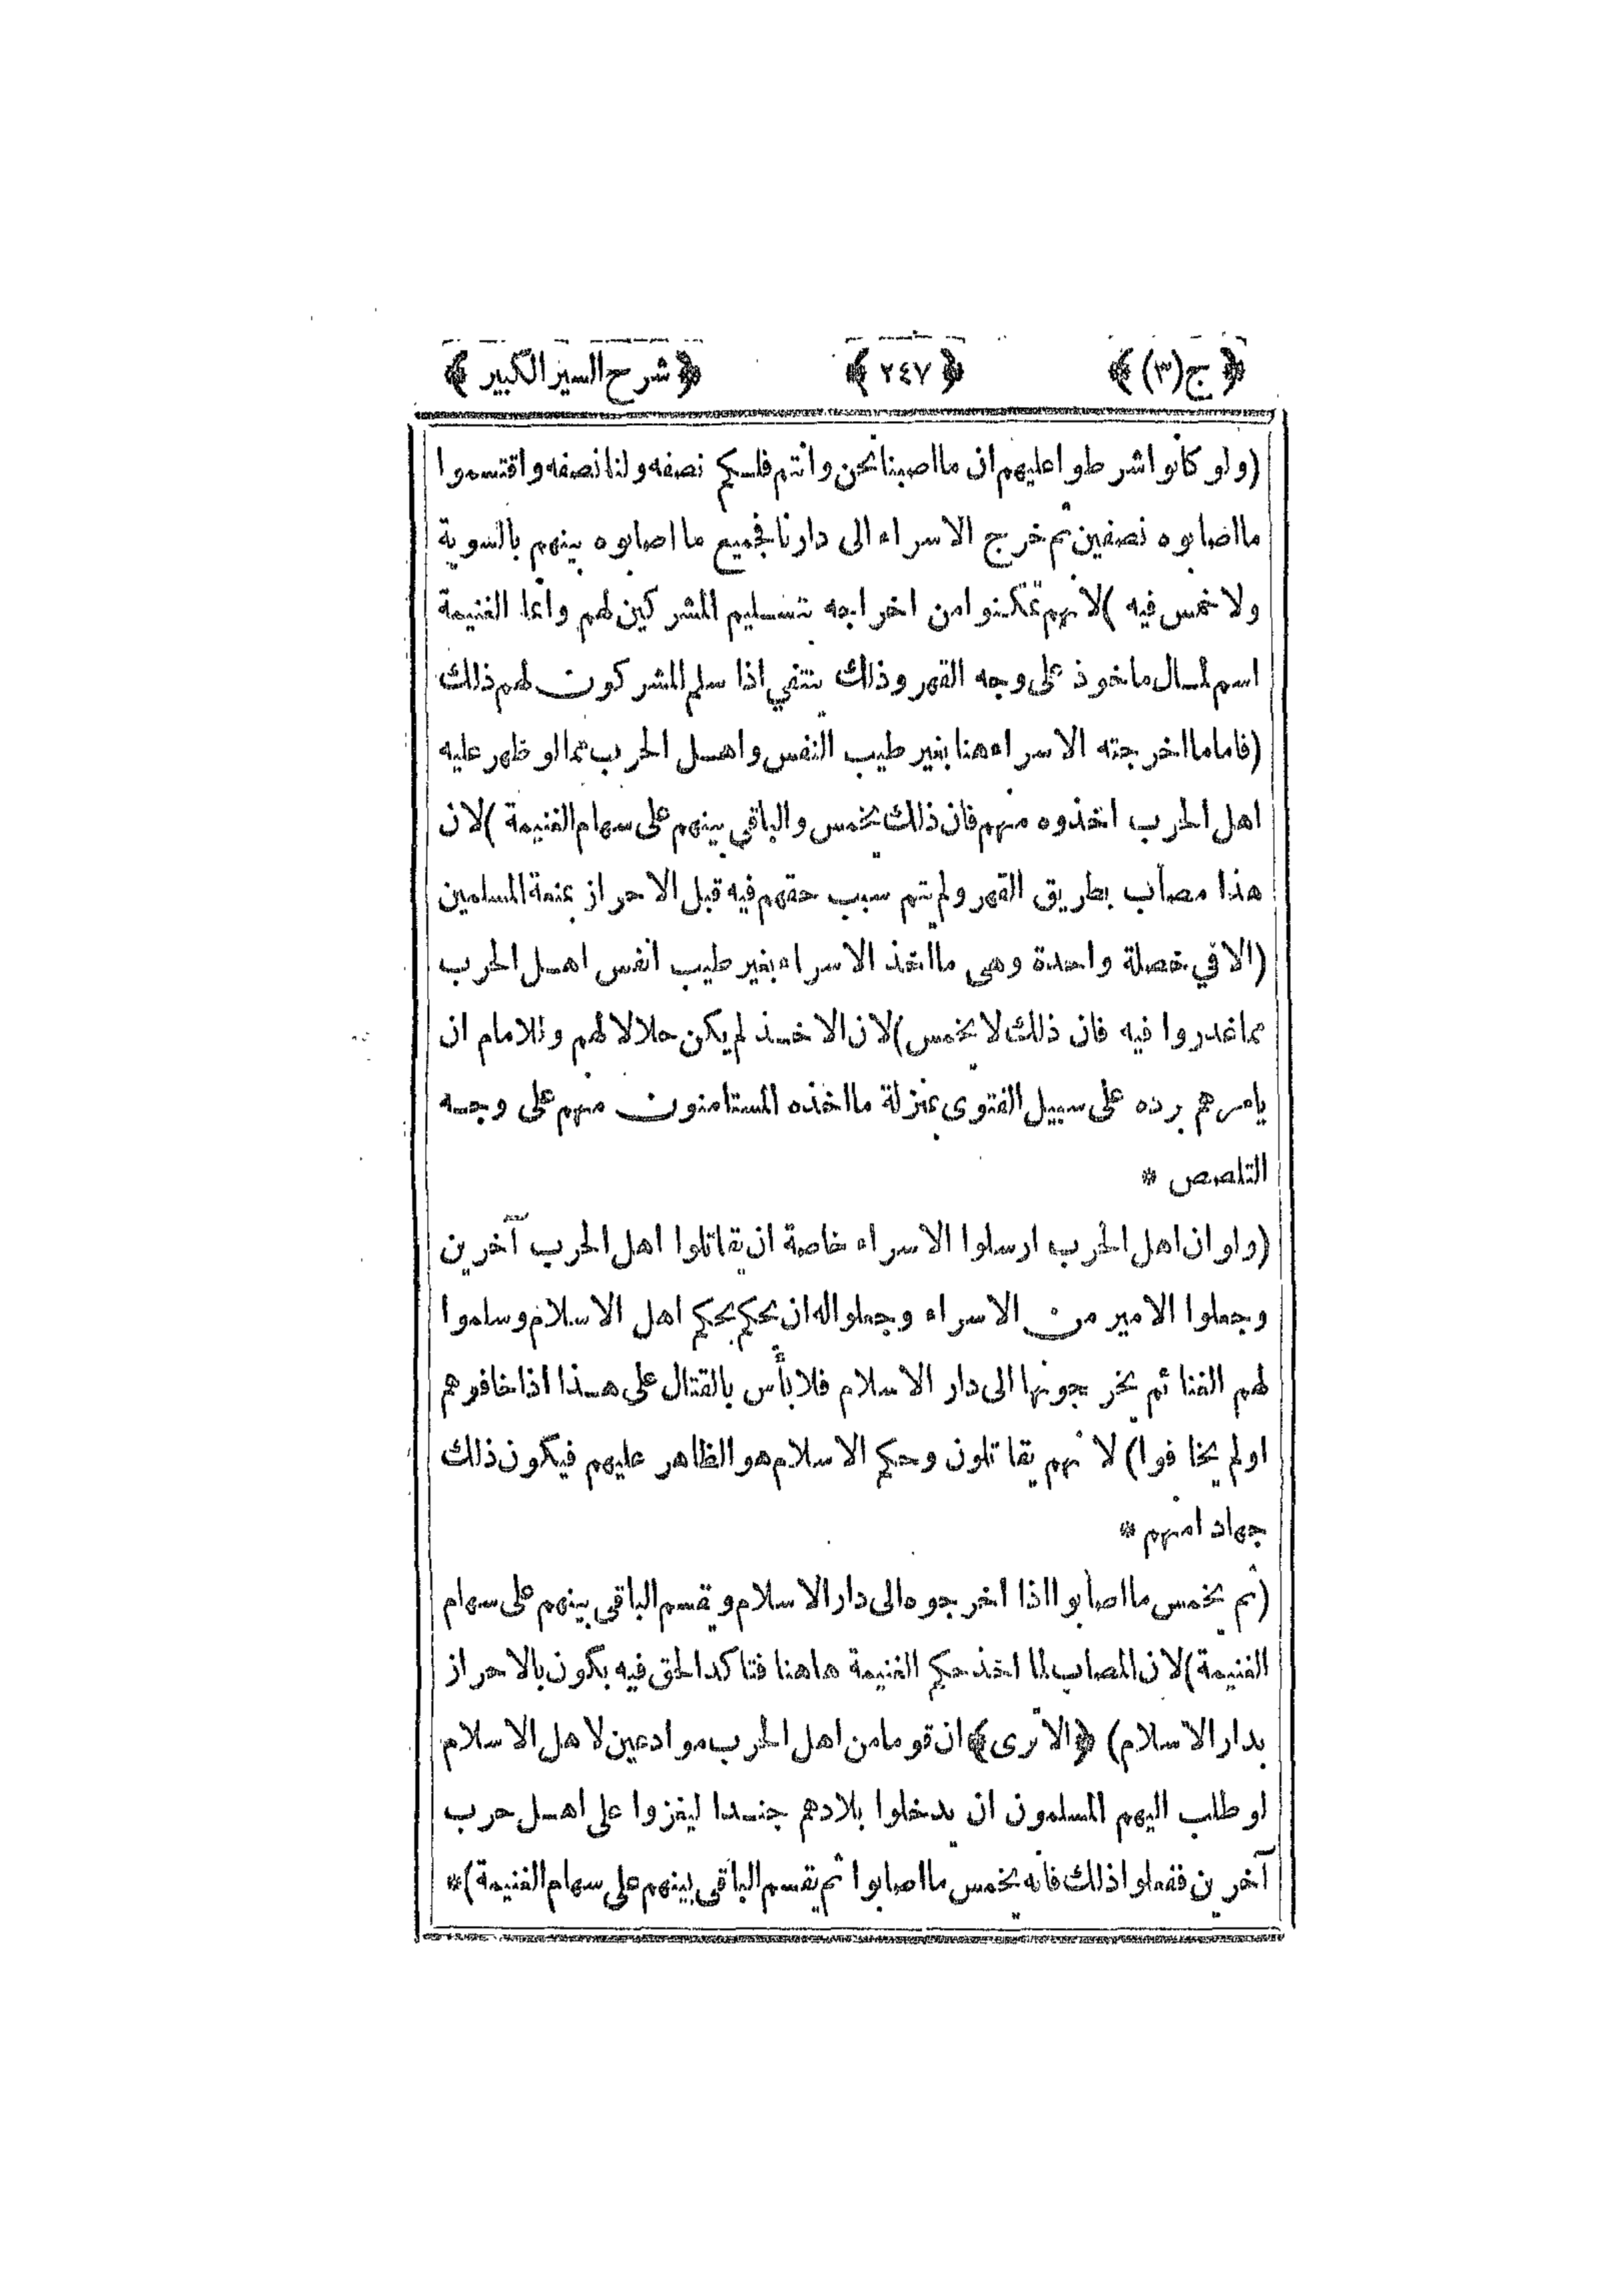 ﴿ ج(٣) ﴾ ﴿ ٢٤٧ ﴾ ﴿ شرح السير الكبير ﴾
(ولو كانوا شرطوا عليهم ان ما اصبنا نحن وانتم فلكم نصفه ولنا نصفه واقتسموا
ما اصابوه نصفين ثم خرج الاسراء الى دارنا فجميع ما اصابوه بينهم بالسوية
ولا خمس فيه )لانهم تمكنوا من اخراجه بتسليم المشركين لهم وانما الغنيمة
اسم لمال ماخوذ على وجه القهر وذلك ينتفي اذا سلم المشركون لهم ذلك
(فاما ما اخرجته الاسراء هنا بغير طيب النفس واهل الحرب مما لو ظهر عليه
اهل الحرب اخذوه منهم فان ذلك يخمس والباقي بينهم على سهام الغنيمة )لان
هذا مصاب بطريق القهر ولم يتم سبب حقهم فيه قبل الاحراز بمنعة المسلمين
(الا في خصلة واحدة وهي ما اتخذ الاسراء بغير طيب انفس اهل الحرب
مما غدروا فيه فان ذلك لا يخمس)لان الاخذ لم يكن حلالا لهم وللامام ان
يامرهم برده على سبيل الفتوى بمنزلة ما اخذه المستامنون منهم على وجه
التلصص *
(ولو ان اهل الحرب ارسلوا الاسراء خاصة ان يقاتلوا اهل الحرب آخرين
وجعلوا الامير من الاسراء وجعلوا له ان يحكم بحكم اهل الاسلام وسلموا
لهم الغنائم يخرجونها الى دار الاسلام فلا بأس بالقتال على هذا اذا خافوهم
او لم يخافوا) لانهم يقاتلون وحكم الاسلام هو الظاهر عليهم فيكون ذلك
جهادا منهم *
(ثم يخمس ما اصابوا اذا اخرجوه الى دار الاسلام ويقسم الباقي بينهم على سهام
الغنيمة)لان المصاب لما اخذ حكم الغنيمة هاهنا فتاكد الحق فيه يكون بالاحراز
بدار الاسلام) ﴿الا ترى﴾ ان قوما من اهل الحرب موادعين لاهل الاسلام
لو طلب اليهم المسلمون ان يدخلوا بلادهم جندا ليغزوا على اهل حرب
آخرين ففعلوا ذلك فانه يخمس ما اصابوا ثم يقسم الباقي بينهم على سهام الغنيمة)*